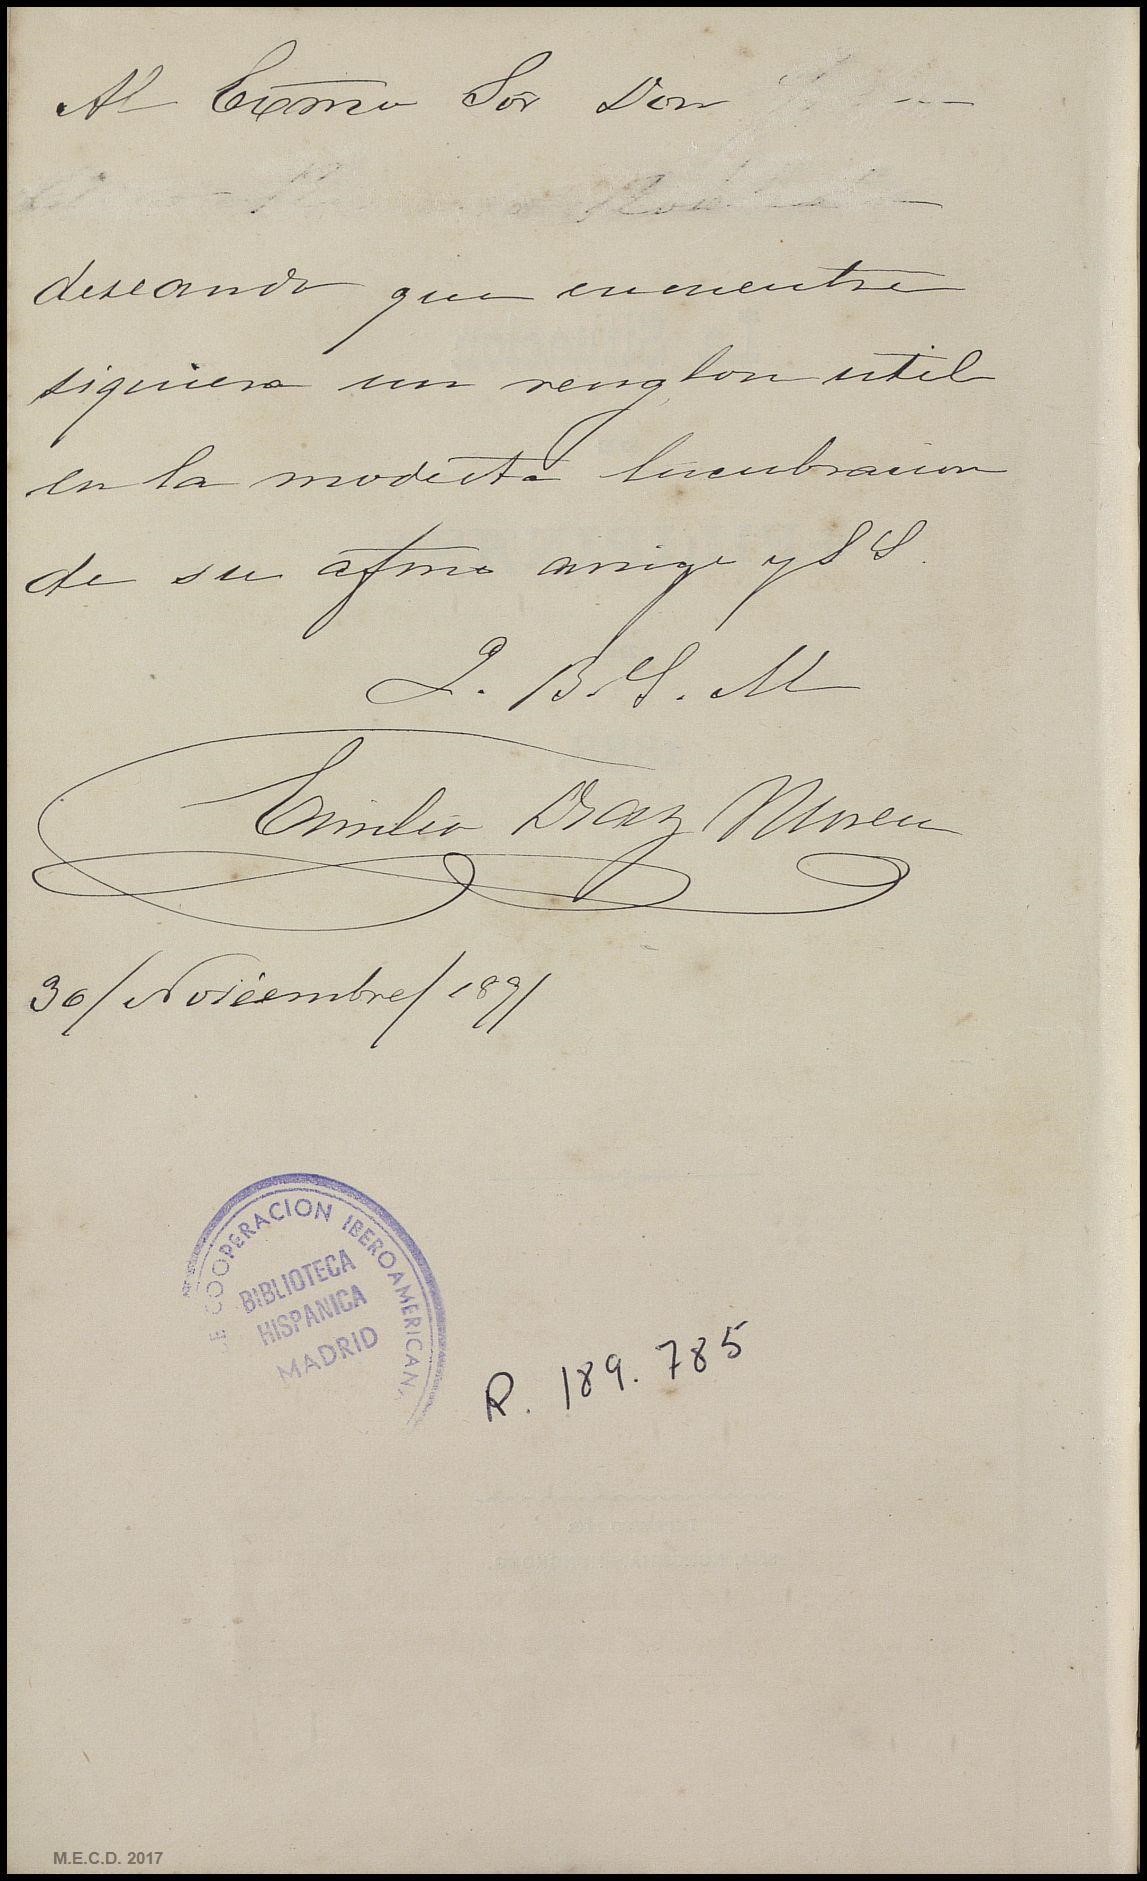 Al Exmo Sor Don
deseando que encuentre
siquiera un renglon util
en la modesta lucubracion
de su afmo amigo y S S.
Q. B. S. M
Emilio Diaz Moreu
30/Noviembre/1891
DE COOPERACION IBEROAMERICAN
BIBLIOTECA
HISPANICA
MADRID
R. 189.785
M.E.C.D. 2017